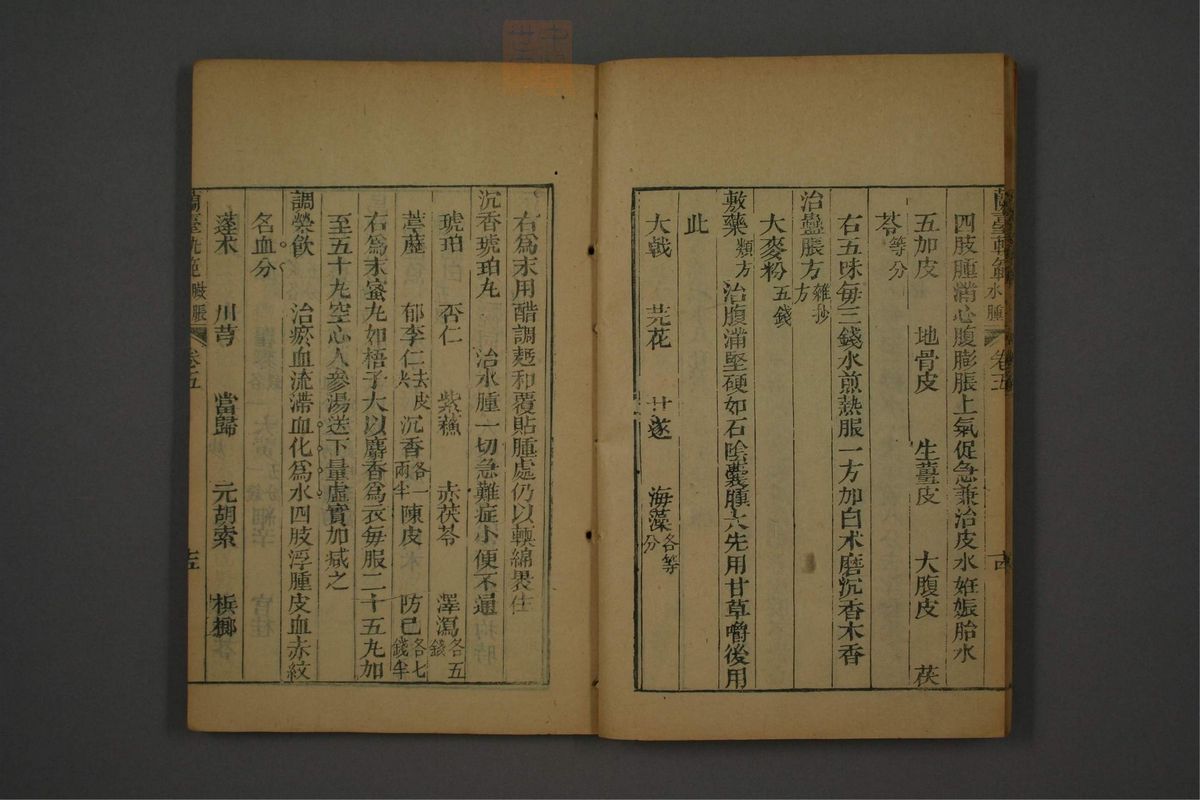 蘭臺軌範 水腫 卷五 十四
四肢腫滿心腹膨脹上氣促急兼治皮水姙娠胎水
五加皮 地骨皮 生薑皮 大腹皮 茯
苓等分
右五味每三錢水煎熱服一方加白朮磨沉香木香
治蠱脹方雜抄方
大麥粉五錢
敷藥類方 治腹滿堅硬如石陰囊腫大先用甘草嚼後用
此
大戟 芫花 甘遂 海藻各等分
右爲末用醋調麪和覆貼腫處仍以輭綿裹住
沉香琥珀丸 治水腫一切急難症小便不通
琥珀 杏仁 紫蘇 赤茯苓 澤瀉各五錢
葶藶 郁李仁去皮 沉香各一兩半 陳皮 防己各七錢半
右爲末蜜丸如梧子大以麝香爲衣每服二十五丸加
至五十丸空心人參湯送下量虛實加減之
調榮飲 治瘀血流滯血化爲水四肢浮腫皮血赤紋
名血分
蓬朮 川芎 當歸 元胡索 檳榔
蘭臺軌範 臌脹 卷五 十五